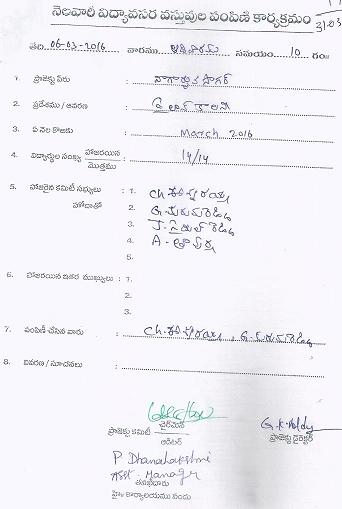 నెలవారీ విద్యావసర వస్తువుల పంపిణీ కార్యక్రమం
31-03
తేది. 06-03-2016 వారము ఆదివారం సమయం 10 గం॥
1. ప్రాజెక్టు పేరు నాగార్జున సాగర్
2. ప్రదేశము / ఆవరణ పైలాన్ కాలని
3. ఏ నెల కొఱకు March 2016
4. విద్యార్థుల సంఖ్య హాజరయిన / మొత్తము 14/14
5. హాజరైన కమిటీ సభ్యులు హోదాతో 1. Ch.
2. G.
3. J.
4. A.
5.
6. హాజరయిన ఇతర ముఖ్యులు : 1.
2.
3.
7. పంపిణీ చేసిన వారు Ch. , G.
8. వివరణ / సూచనలు
ప్రాజెక్టు కమిటీ చైర్‌మెన్ / ఆడిటర్
G.K. Reddy
ప్రాజెక్టు డైరెక్టర్
P Dhanalakshmi
Asst. Manager
తనిఖీదారు
హై. కార్యాలయము నందు